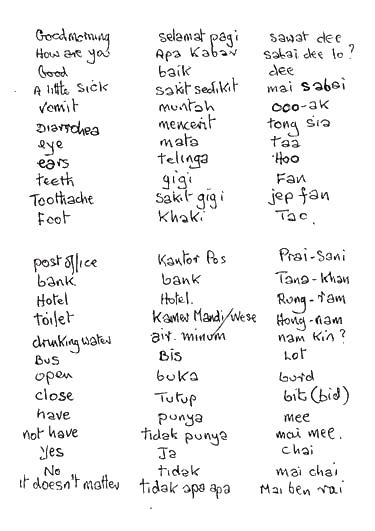 Goodmorning selamat pagi sawat dee
How are you Apa Kabar sabai dee lo?
Good baik dee
A little sick sakit sedikit mai sabai
vomit muntah ooo-ak
Diarrhea mencerit tong sia
eye mata taa
ears telinga Hoo
teeth gigi Fan
Toothache sakit gigi jep fan
Foot Khaki Tao.
post office Kantor Pos Prai-Sani
bank bank Tana-khan
Hotel Hotel. Rong-ram
toilet Kamer Mandi/wese Hong-nam
drinking water air minum nam kin?
Bus Bis Lot
open buka burd
close Tutup bit (bid)
have punya mee
not have tidak punya mai mee.
Yes Ja chai
No tidak mai chai
it doesn't matter tidak apa apa Mai ben rai